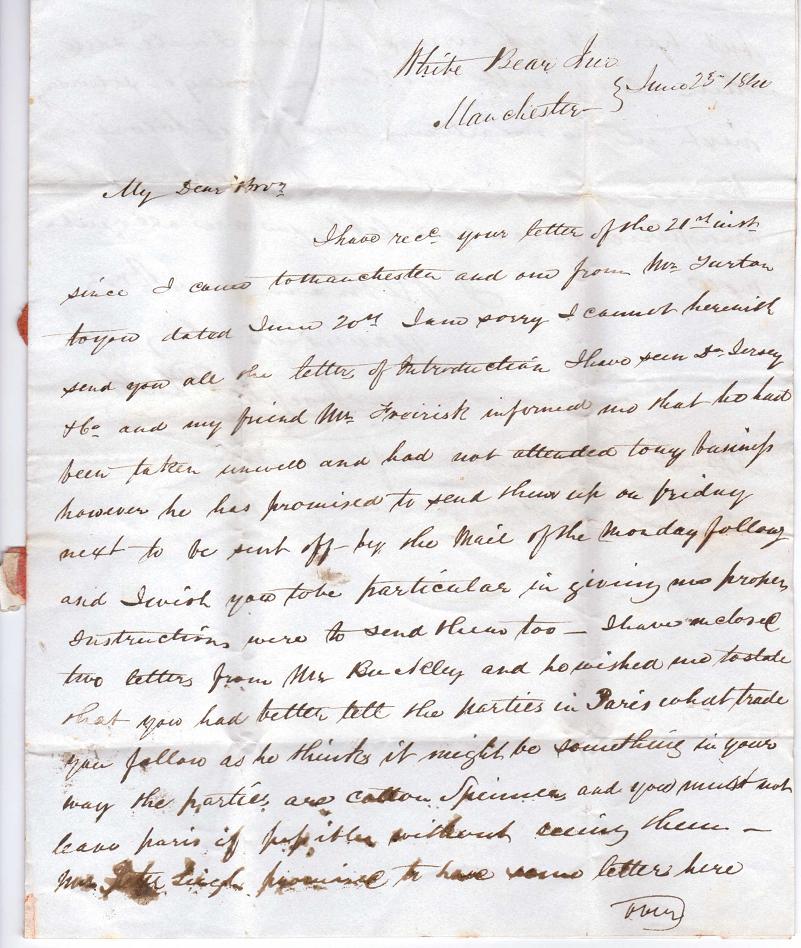 White Bear Inn
Manchester } June 25th 18
My Dear Bror
I have recd your letter of the 21st inst
since I came to Manchester and one from Mr Turton
to you dated June 20th I am sorry I cannot herewith
send you all the letters of Introduction I have seen Du Jersey
& Co and my friend Mr informed me that he had
been taken unwell and had not attended to my business
however he has promised to send them up on friday
next to be sent off by the Mail of the Monday follow
and I wish you to be particular in giving me proper
Instructions were to send them too — I have inclosed
two letters from Mr Buckley and he wished me to state
that you had better tell the parties in Paris what trade
you follow as he thinks it might be something in your
way the parties are cotton Spinners and you must not
leave paris if possible without seeing them —
Mr John promised to have some letters here
over